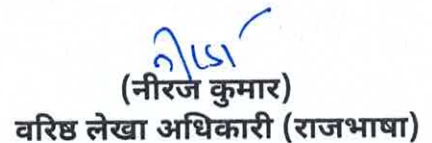 (नीरज कुमार)
वरिष्ठ लेखा अधिकारी (राजभाषा)